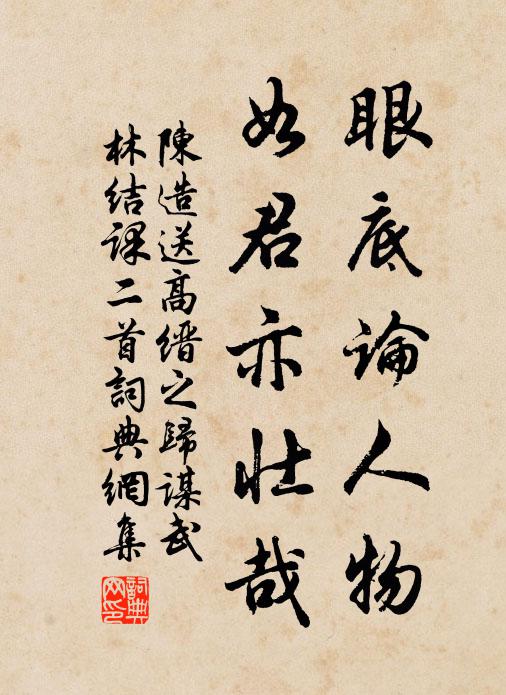 眼底論人物
如君亦壯哉
陳造送高縉之歸謀武
林結課二首詞典網集
詞典網印